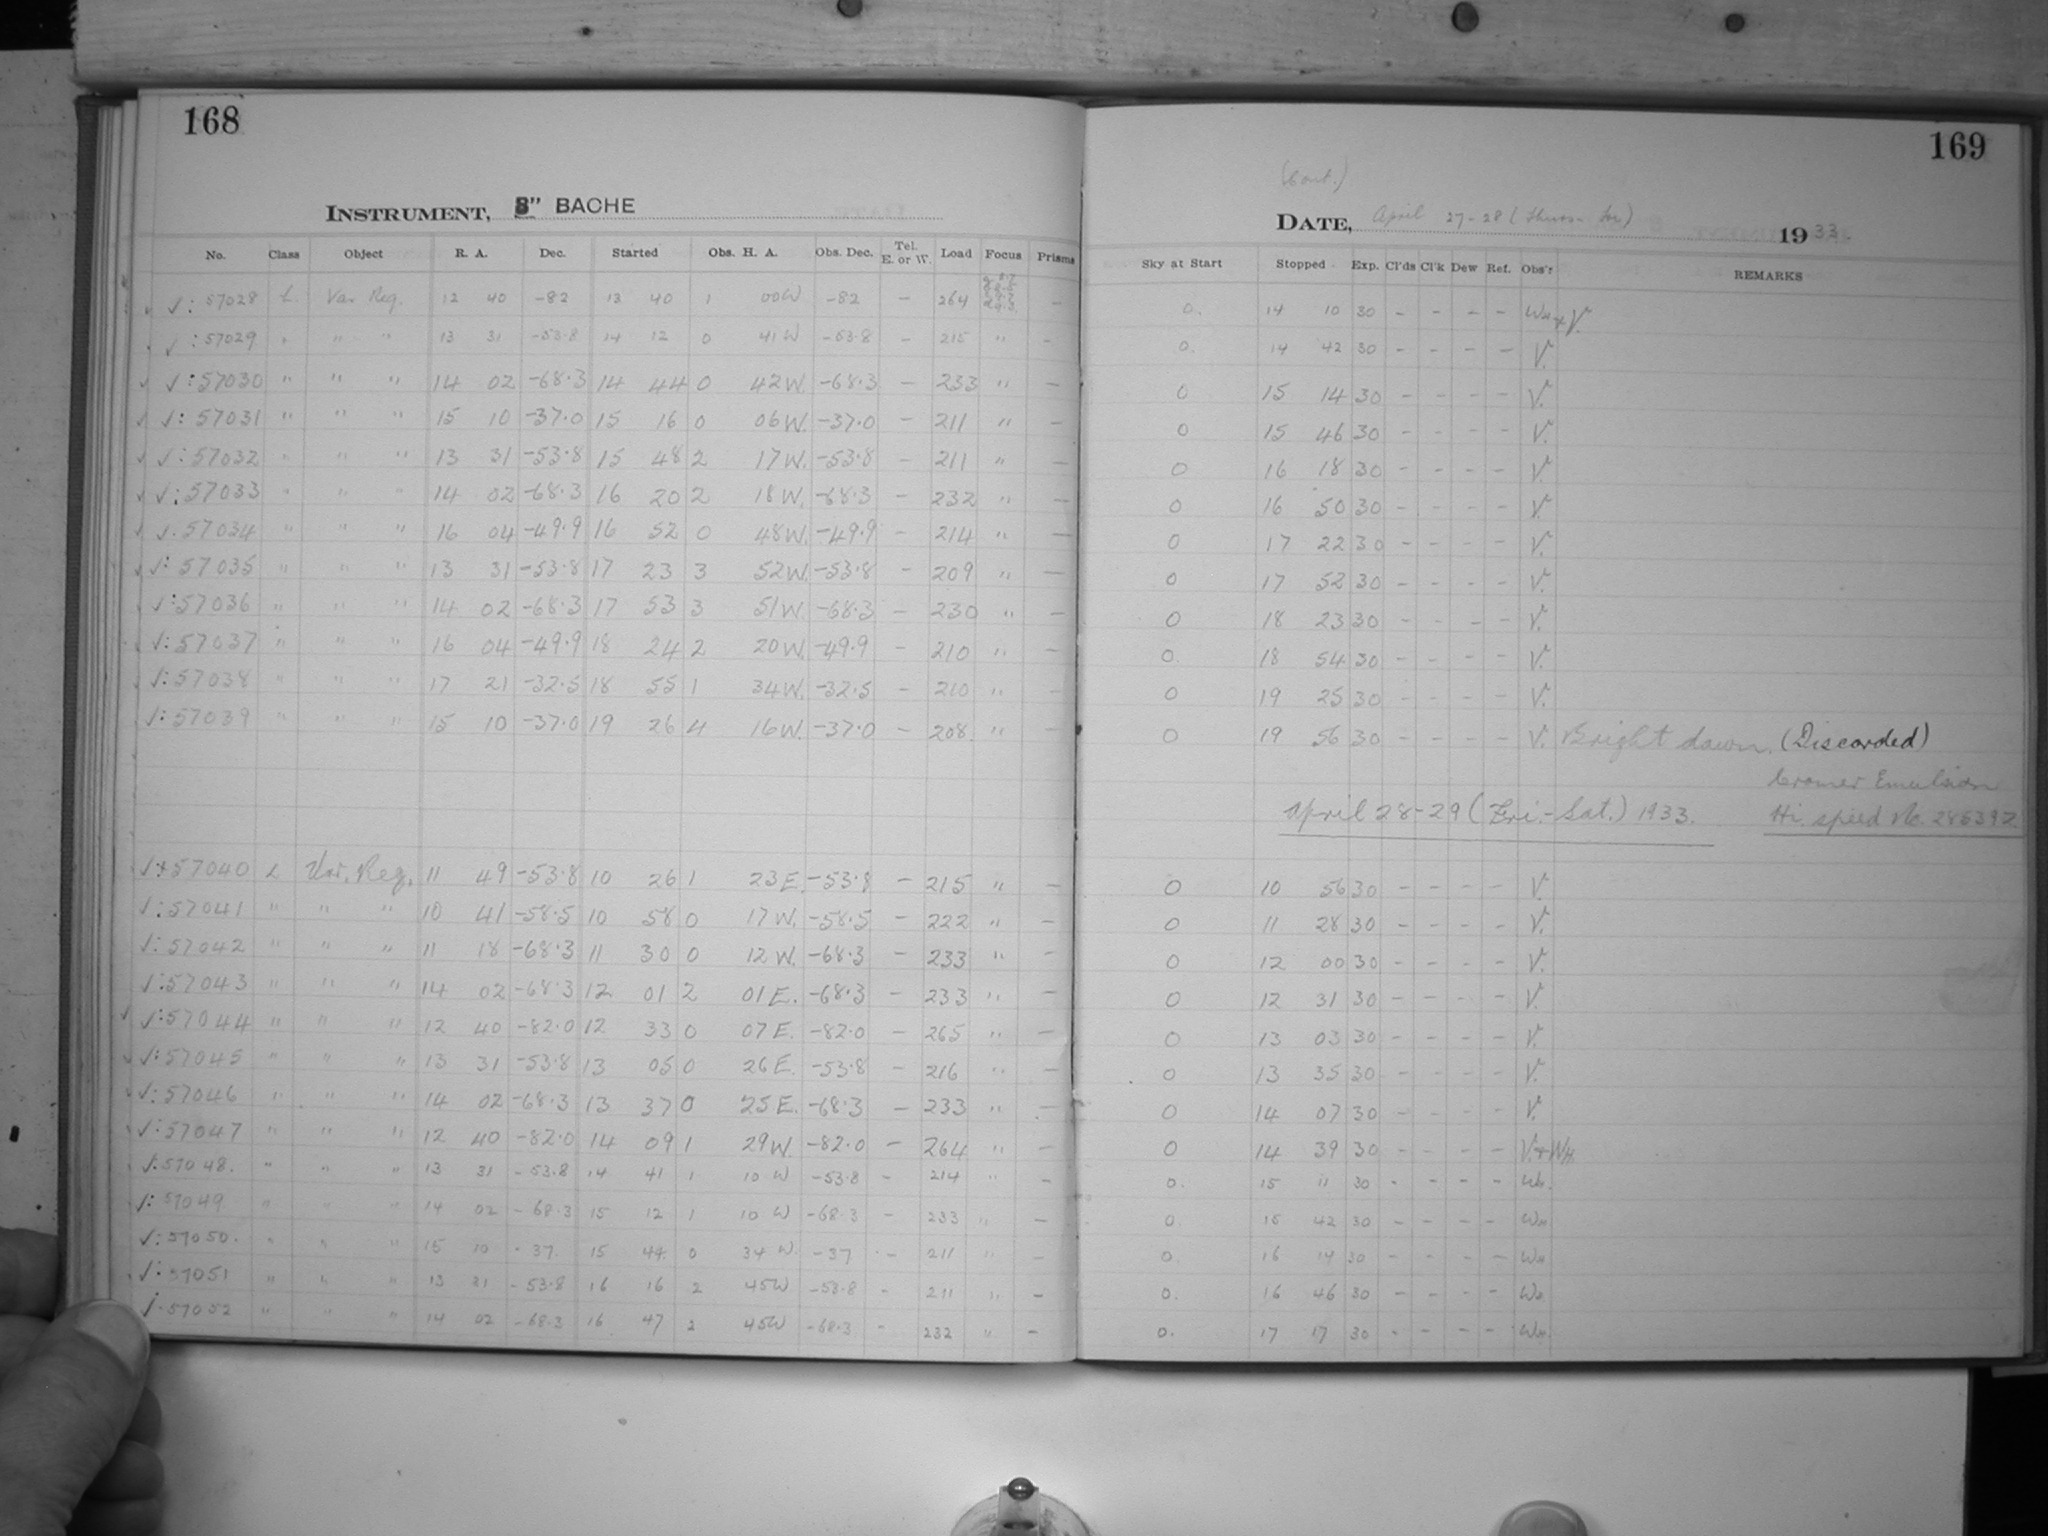 168
INSTRUMENT, 8" BACHE
No. Class Object R. A. Dec. Started Obs. H. A. Obs. Dec. Tel. E. or W. Load Focus Prisms
√: 57028 L. Var Reg. 12 40 -82 13 40 1 00W -82 - 264 -
√: 57029 " " " 13 31 -53.8 14 12 0 41W -53.8 - 215 " -
√: 57030 " " " 14 02 -68.3 14 44 0 42W. -68.3 - 233 " -
√: 57031 " " " 15 10 -37.0 15 16 0 06W. -37.0 - 211 " -
√: 57032 " " " 13 31 -53.8 15 48 2 17W. -53.8 - 211 " -
√: 57033 " " " 14 02 -68.3 16 20 2 18W. -68.3 - 232 " -
√. 57034 " " " 16 04 -49.9 16 52 0 48W. -49.9 - 214 " -
√: 57035 " " " 13 31 -53.8 17 23 3 52W. -53.8 - 209 " -
√: 57036 " " " 14 02 -68.3 17 53 3 51W. -68.3 - 230 " -
√: 57037 " " " 16 04 -49.9 18 24 2 20W. -49.9 - 210 " -
√: 57038 " " " 17 21 -32.5 18 55 1 34W. -32.5 - 210 " -
√: 57039 " " " 15 10 -37.0 19 26 4 16W. -37.0 - 208 " -
√+57040 L Var. Reg. 11 49 -53.8 10 26 1 23E. -53.8 - 215 " -
√: 57041 " " " 10 41 -58.5 10 58 0 17W. -58.5 - 222 " -
√: 57042 " " " 11 18 -68.3 11 30 0 12W. -68.3 - 233 " -
√: 57043 " " " 14 02 -68.3 12 01 2 01E. -68.3 - 233 " -
√: 57044 " " " 12 40 -82.0 12 33 0 07E. -82.0 - 265 " -
√: 57045 " " " 13 31 -53.8 13 05 0 26E. -53.8 - 216 " -
√: 57046 " " " 14 02 -68.3 13 37 0 25E. -68.3 - 233 " -
√: 57047 " " " 12 40 -82.0 14 09 1 29W. -82.0 - 264 " -
√: 57048. " " " 13 31 -53.8 14 41 1 10W -53.8 - 214 " -
√: 57049 " " " 14 02 -68.3 15 12 1 10W -68.3 - 233 " -
√: 57050. " " " 15 10 -37. 15 44 0 34W. -37 - 211 " -
√: 57051 " " " 13 31 -53.8 16 16 2 45W -53.8 - 211 " -
√. 57052 " " " 14 02 -68.3 16 47 2 45W -68.3 - 232 " -
169
(Cont.)
DATE, April 27-28 ( 1933.
Sky at Start Stopped Exp. Cl'ds Cl'k Dew Ref. Obs'r REMARKS
0. 14 10 30 - - - - V.
0. 14 42 30 - - - - V.
0 15 14 30 - - - - V.
0 15 46 30 - - - - V.
0 16 18 30 - - - - V.
0 16 50 30 - - - - V.
0 17 22 30 - - - - V.
0 17 52 30 - - - - V.
0 18 23 30 - - - - V.
0. 18 54 30 - - - - V.
0 19 25 30 - - - - V.
0 19 56 30 - - - - V. Bright dawn. (Discarded)
Cramer Emulsion
April 28-29 (Fri.-Sat.) 1933. Hi. speed No.
0 10 56 30 - - - - V.
0 11 28 30 - - - - V.
0 12 00 30 - - - - V.
0 12 31 30 - - - - V.
0 13 03 30 - - - - V.
0 13 35 30 - - - - V.
0 14 07 30 - - - - V.
0 14 39 30 - - - - V.+WH.
0. 15 11 30 - - - - WH.
0. 15 42 30 - - - - WH
0. 16 14 30 - - - - WH
0. 16 46 30 - - - - WH
0. 17 17 30 - - - - WH.